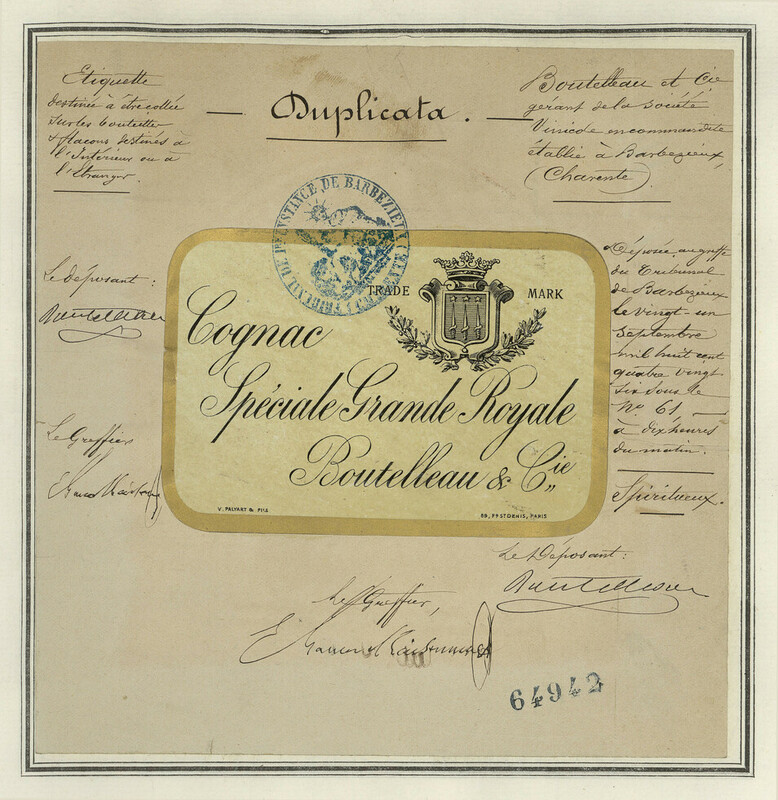 Duplicata.
Etiquette
destinée à être collée
sur les bouteilles
& flacons destinés à
l'Intérieur ou à
l'étranger.
Boutelleau et Cie
gérant de la Société
Vinicole en commandite
établie à Barbezieux
(Charente)
Le déposant :
Boutelleau
Le Greffier
TRIBUNAL DE 1ERE INSTANCE DE BARBEZIEUX
TRADE MARK
Cognac
Spéciale Grande Royale
Boutelleau & Cie
V. PALYART & FILS
PARIS
Déposée au greffe
du Tribunal
de Barbezieux
le vingt-un
Septembre
mil huit cent
quatre vingt
six sous le
No 61
à dix heures
du matin.
Spiritueux.
Le Déposant :
Boutelleau
Le Greffier,
64942